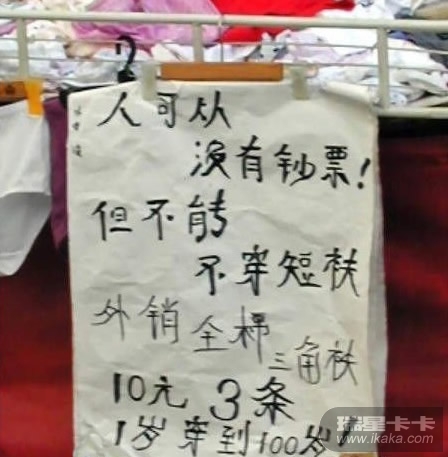 人可从
没有钞票!
但不能
不穿短衭
外销全棉
三角衭
10元 3条
1岁穿到100岁
瑞星卡卡
www.ikaka.com